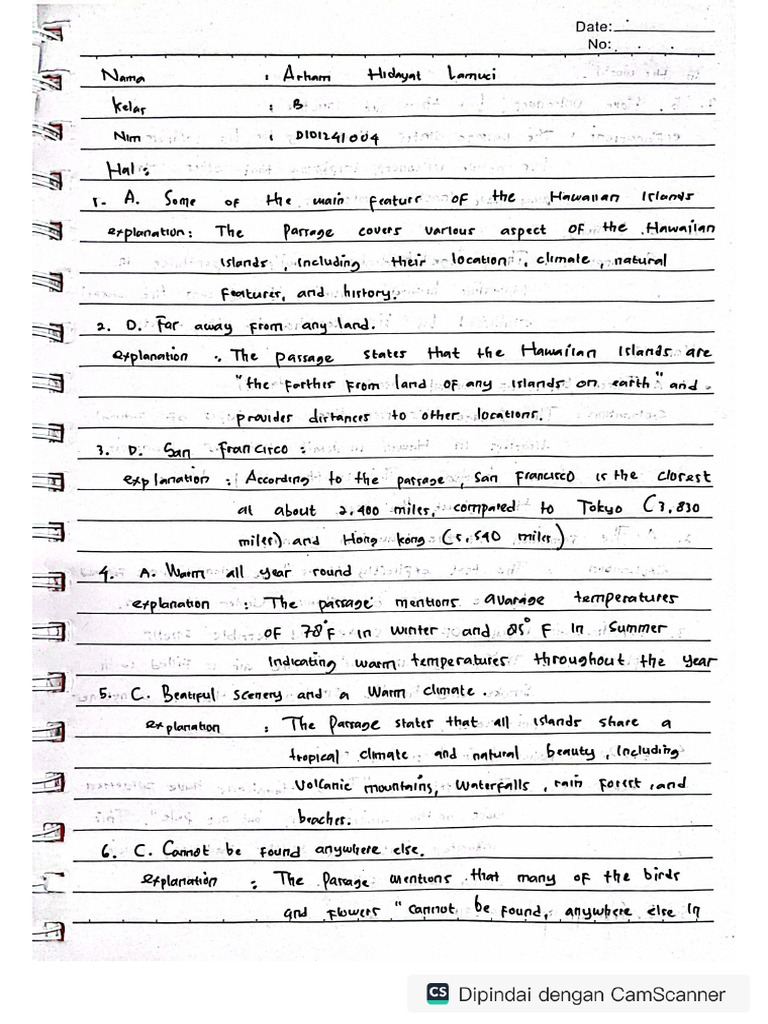 Date:
No:
Nama : Arham Hidayat Lamuci
Kelas : B
Nim : D101241004
Hal :
1. A. Some of the main feature of the Hawaiian Islands
explanation: The Passage covers various aspect of the Hawaiian
Islands, including their location, climate, natural
features, and history.
2. D. Far away from any land.
explanation : The passage states that the Hawaiian Islands are
"the farther from land of any islands on earth" and
provides distances to other locations.
3. D. San Francisco :
explanation : According to the passage, San Francisco is the closest
at about 2,400 miles, compared to Tokyo (3,830
miles) and Hong kong (5,540 miles)
4. A. Warm all year round
explanation : The passage mentions avarage temperatures
of 78°F in winter and 85° F in Summer
Indicating warm temperatures throughout the year
5. C. Beatiful scenery and a Warm climate.
explanation : The Passage states that all islands share a
tropical climate and natural beauty, including
Volcanic mountains, Waterfalls, rain forest, and
beaches.
6. C. Cannot be found anywhere else.
explanation : The Passage mentions that many of the birds
and flowers "cannot be found, anywhere else in
CS Dipindai dengan CamScanner